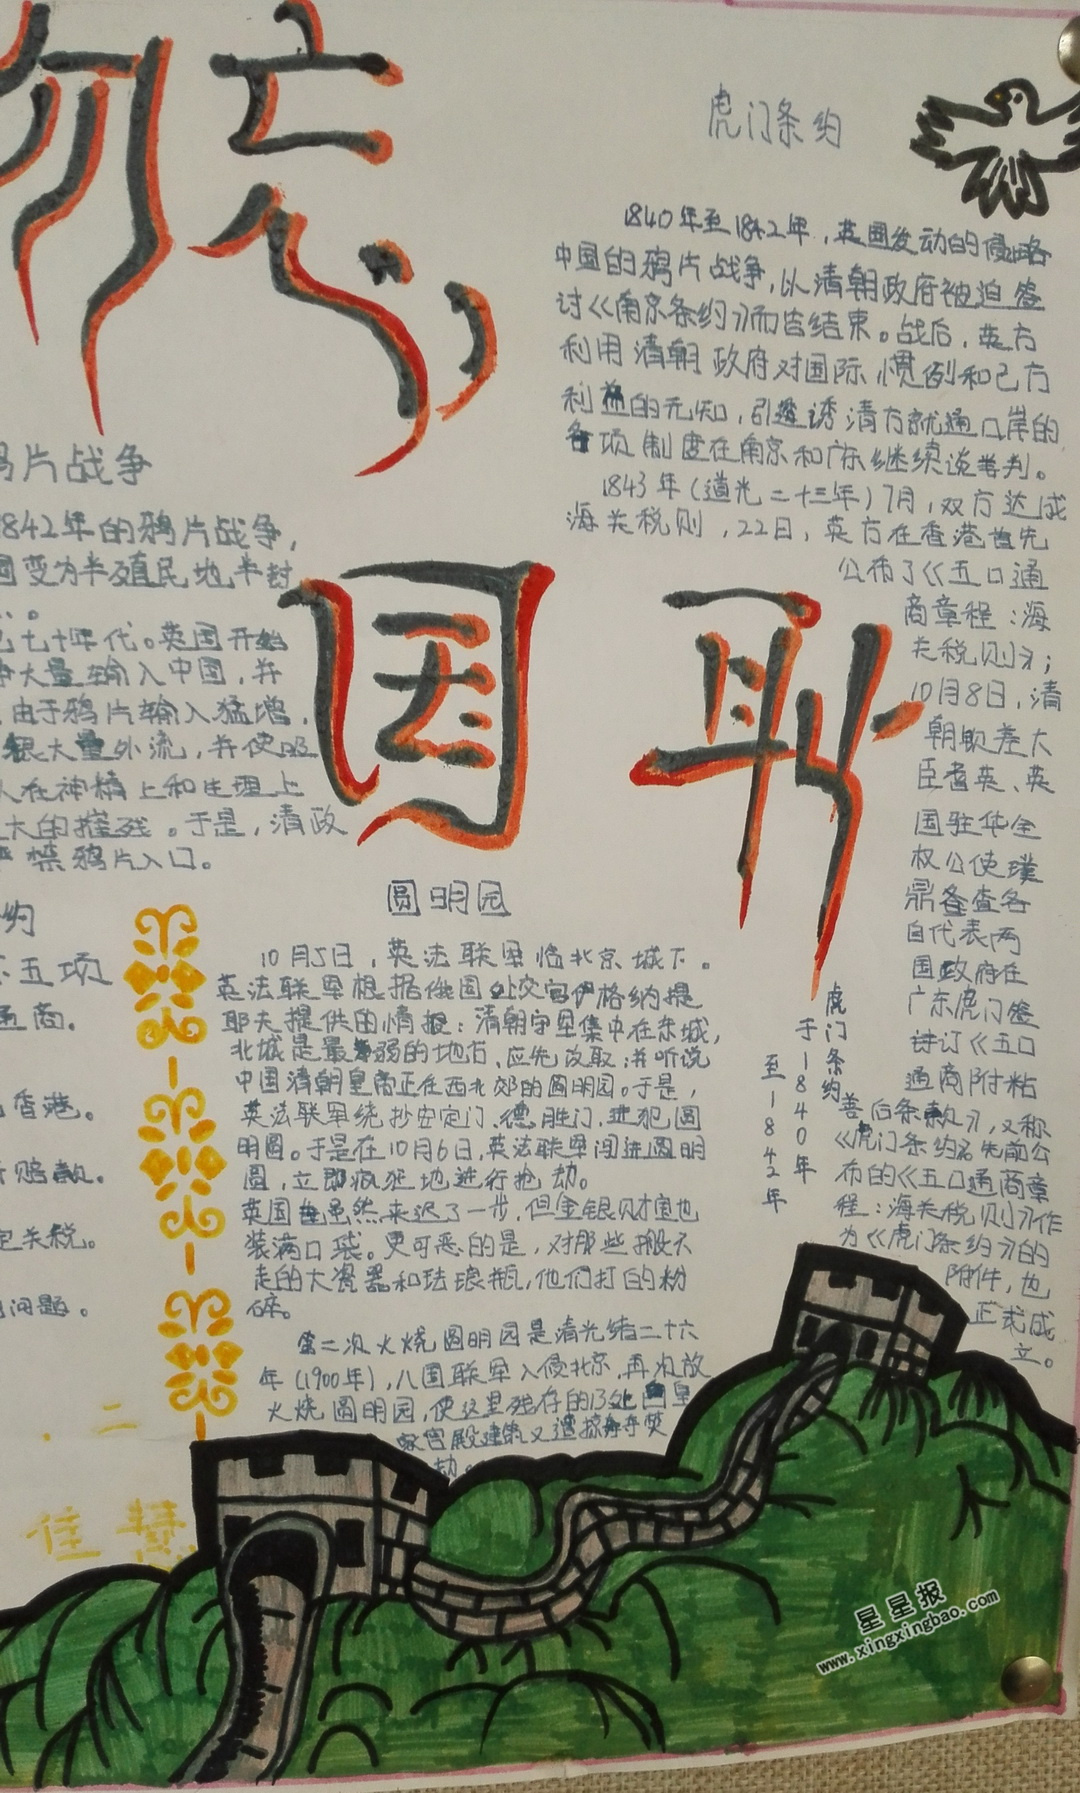 勿忘
国耻
虎门条约
1840年至1842年，英国发动的侵略
中国的鸦片战争，以清朝政府被迫签
讨《南京条约》而告结束。战后，英方
利用清朝政府对国际惯例和己方
利益的无知，引诱清方就通口岸的
各项制度在南京和广东继续谈判。
1843年（道光二十三年）7月，双方达成
海关税则，22日，英方在香港首先
公布了《五口通
商章程：海
关税则》；
10月8日，清
朝钦差大
臣耆英、英
国驻华全
权公使璞
鼎查各
自代表两
国政府在
广东虎门签
订《五口
通商附粘
善后条款》，又称
《虎门条约》先前公
布的《五口通商章
程：海关税则》作
为《虎门条约》的
附件，也
正式成
立。
虎门条约
于1840年
至1842年
鸦片战争
1842年的鸦片战争，
国变为半殖民地半封
七十年代。英国开始
大量输入中国，并
由于鸦片输入猛增，
银大量外流，并使吸
人在神精上和生理上
大的摧残。于是，清政
严禁鸦片入口。
约
五项
通商。
香港。
赔款。
定关税。
问题。
圆明园
10月5日，英法联军临北京城下。
英法联军根据俄国外交官伊格纳提
耶夫提供的情报：清朝守军集中在东城，
北城是最弱的地方，应先攻取；并听说
中国清朝皇帝正在西北郊的圆明园。于是，
英法联军绕抄安定门、德胜门，进犯圆
明圆。于是在10月6日，英法联军闯进圆明
圆，立即疯狂地进行抢劫。
英国虽然来迟了一步，但金银财宝也
装满口袋。更可恶的是，对那些搬不
走的大瓷器和珐琅瓶，他们打的粉
碎。
第二次火烧圆明园是清光绪二十六
年（1900年），八国联军入侵北京，再次放
火烧圆明园，使这里残存的13处皇
家宫殿建筑又遭掠夺焚
劫。
二
佳慧
星星报
www.xingxingbao.com